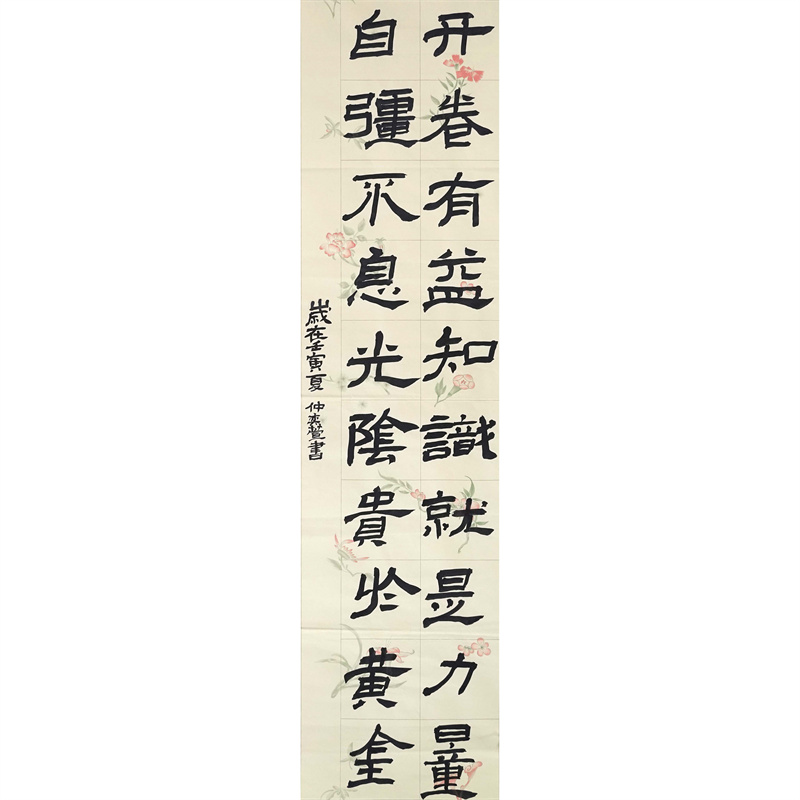 开卷有益知識就是力量
自彊不息光陰貴於黄金
歲在壬寅夏 仲奕萱書